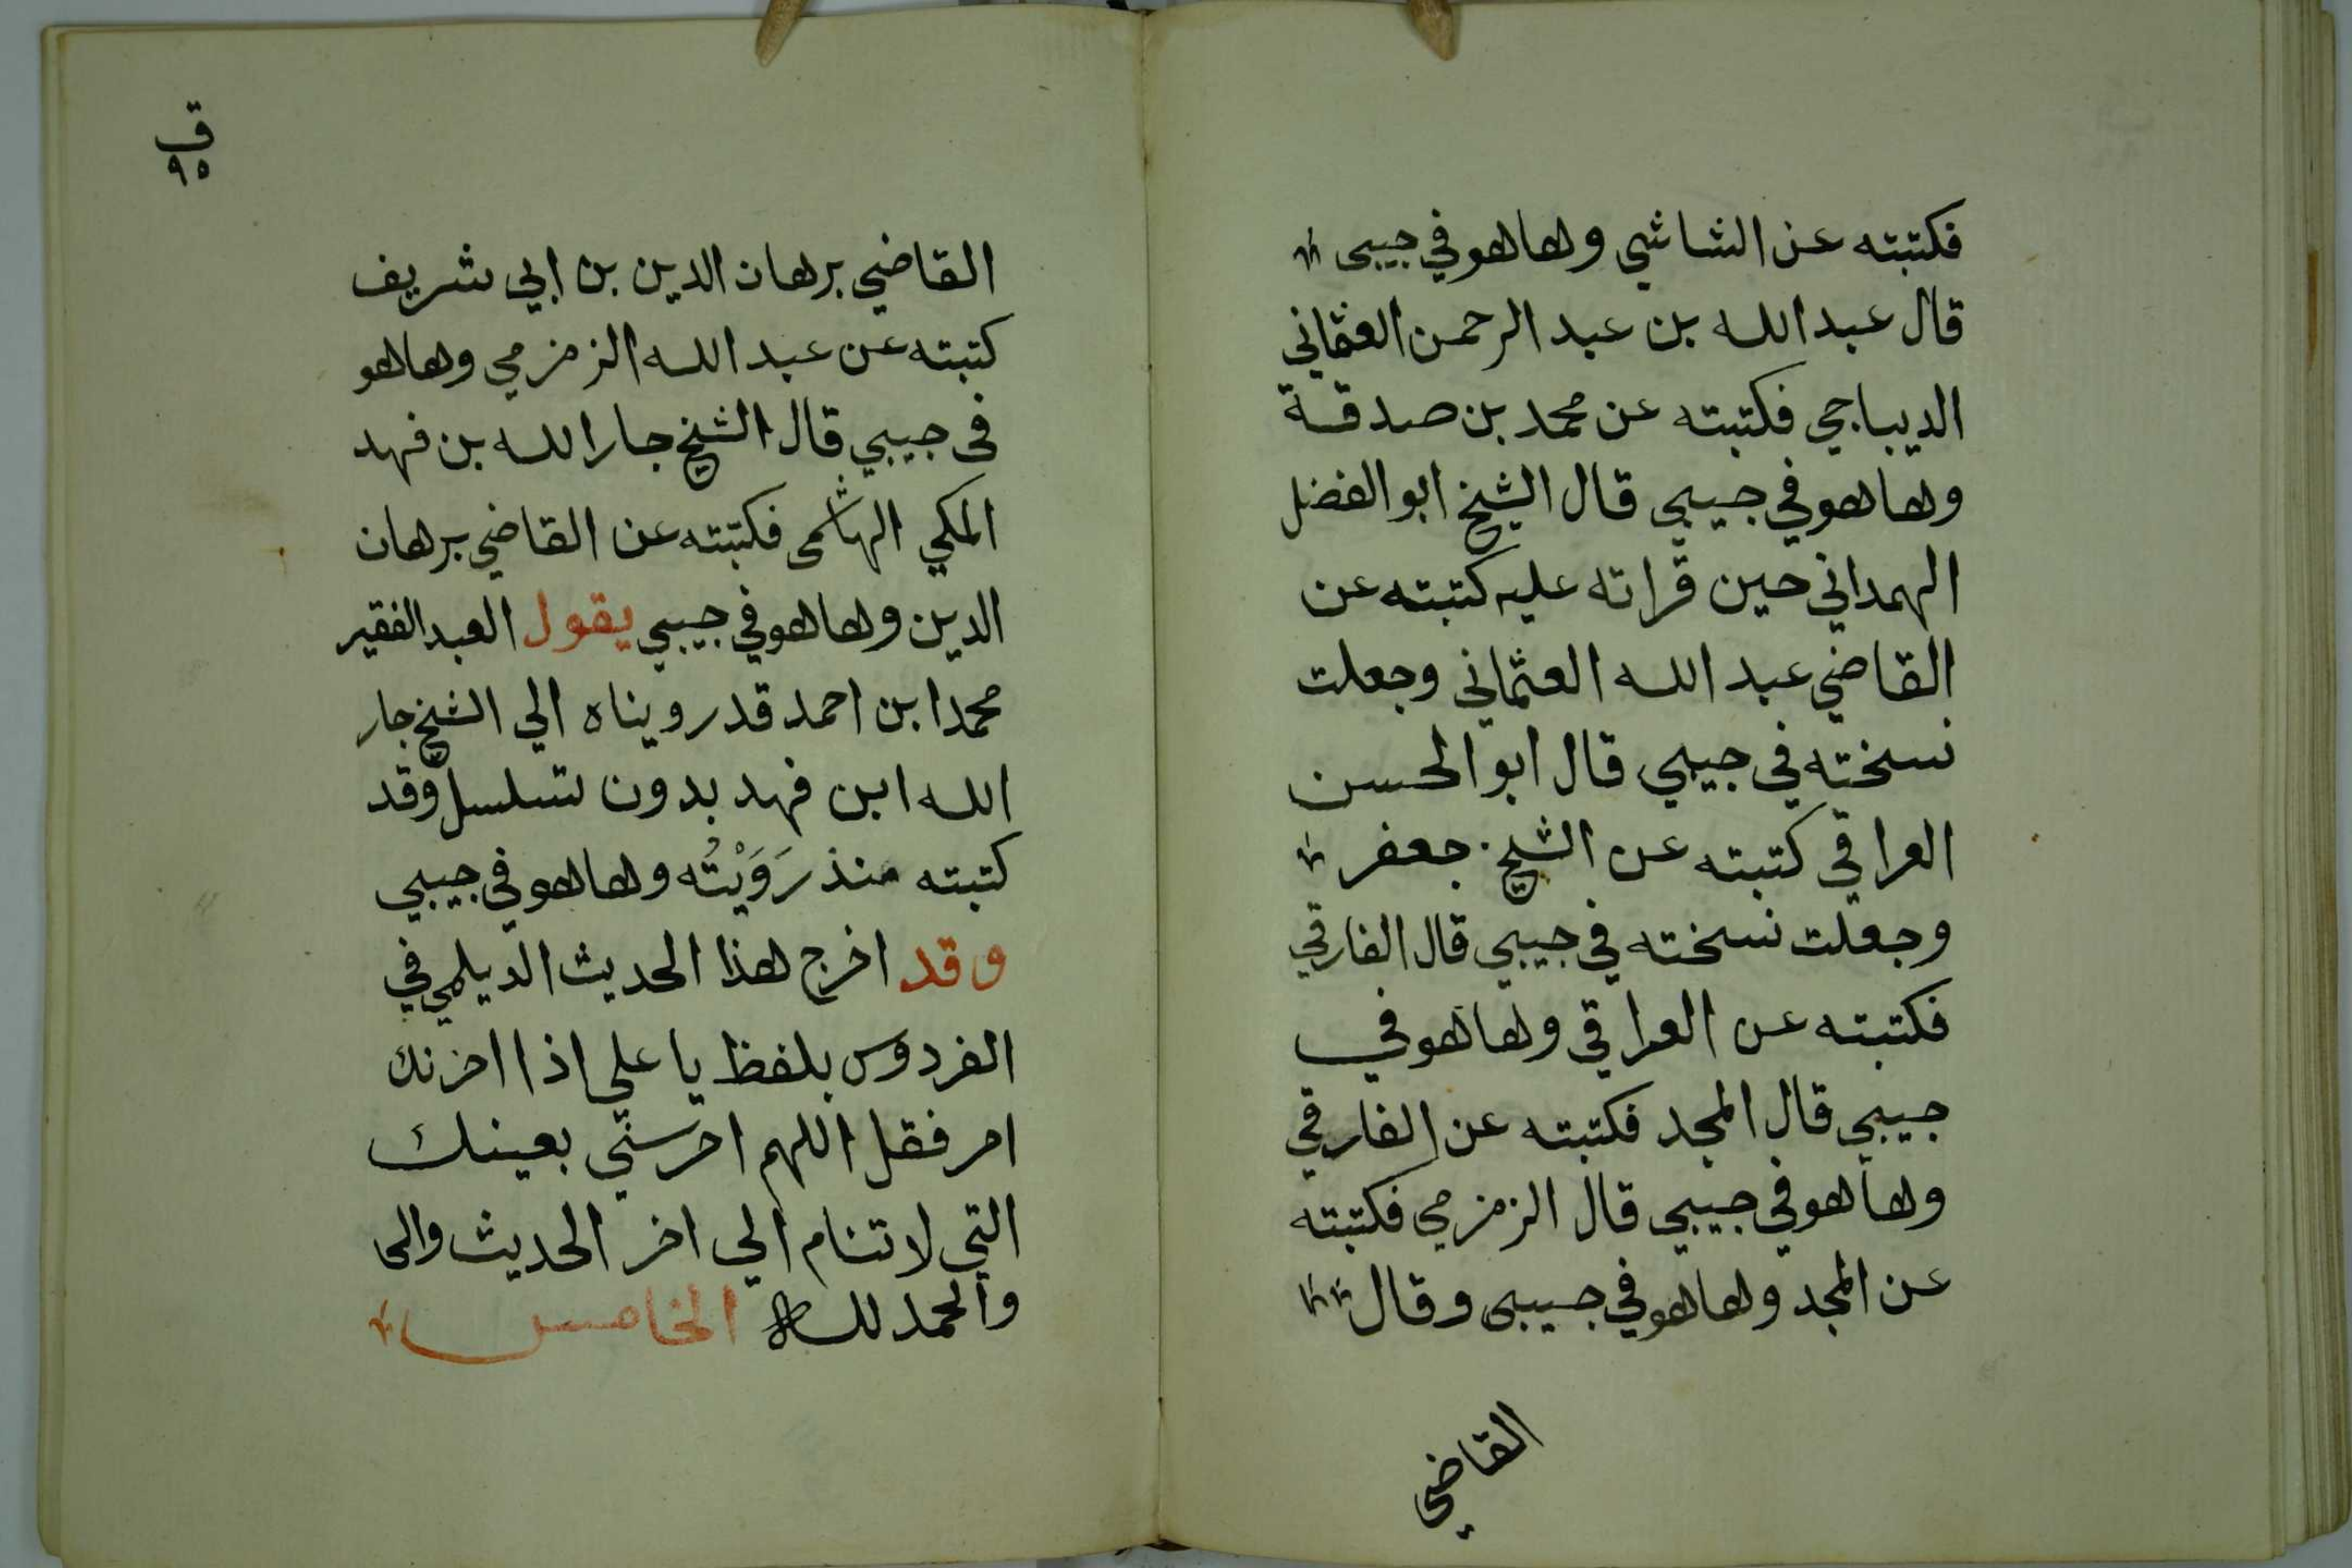 فكتبته عن الشاشي وهاهو في جيبى
قال عبد الله بن عبد الرحمن العثماني
الديباجي فكتبته عن محمد بن صدقة
وهاهو في جيبي قال الشيخ ابو الفضل
الهمداني حين قراته عليه كتبته عن
القاضي عبد الله العثماني وجعلت
نسخته في جيبي قال ابو الحسن
العراقي كتبته عن الشيخ جعفر
وجعلت نسخته في جيبي قال الفارقي
فكتبته عن العراقي وهاهو في
جيبي قال المجد فكتبته عن الفارقي
وهاهو في جيبي قال الزمزمي فكتبته
عن المجد وهاهو في جيبى وقال
القاضي
ق
٩٥
القاضي برهان الدين بن ابي شريف
كتبته عن عبد الله الزمزمي وهاهو
في جيبي قال الشيخ جار الله بن فهد
المكي الهاشمى فكتبته عن القاضي برهان
الدين وهاهو في جيبي يقول العبد الفقير
محمد ابن احمد قد رويناه الي الشيخ جار
الله ابن فهد بدون تسلسل وقد
كتبته منذ رَوَيْتُه وهاهو في جيبي
وقد اخرج هذا الحديث الديلمي في
الفردوس بلفظ يا علي اذا احزنك
امر فقل اللهم احرسني بعينك
التي لا تنام الي اخر الحديث
والحمد لله الخامس